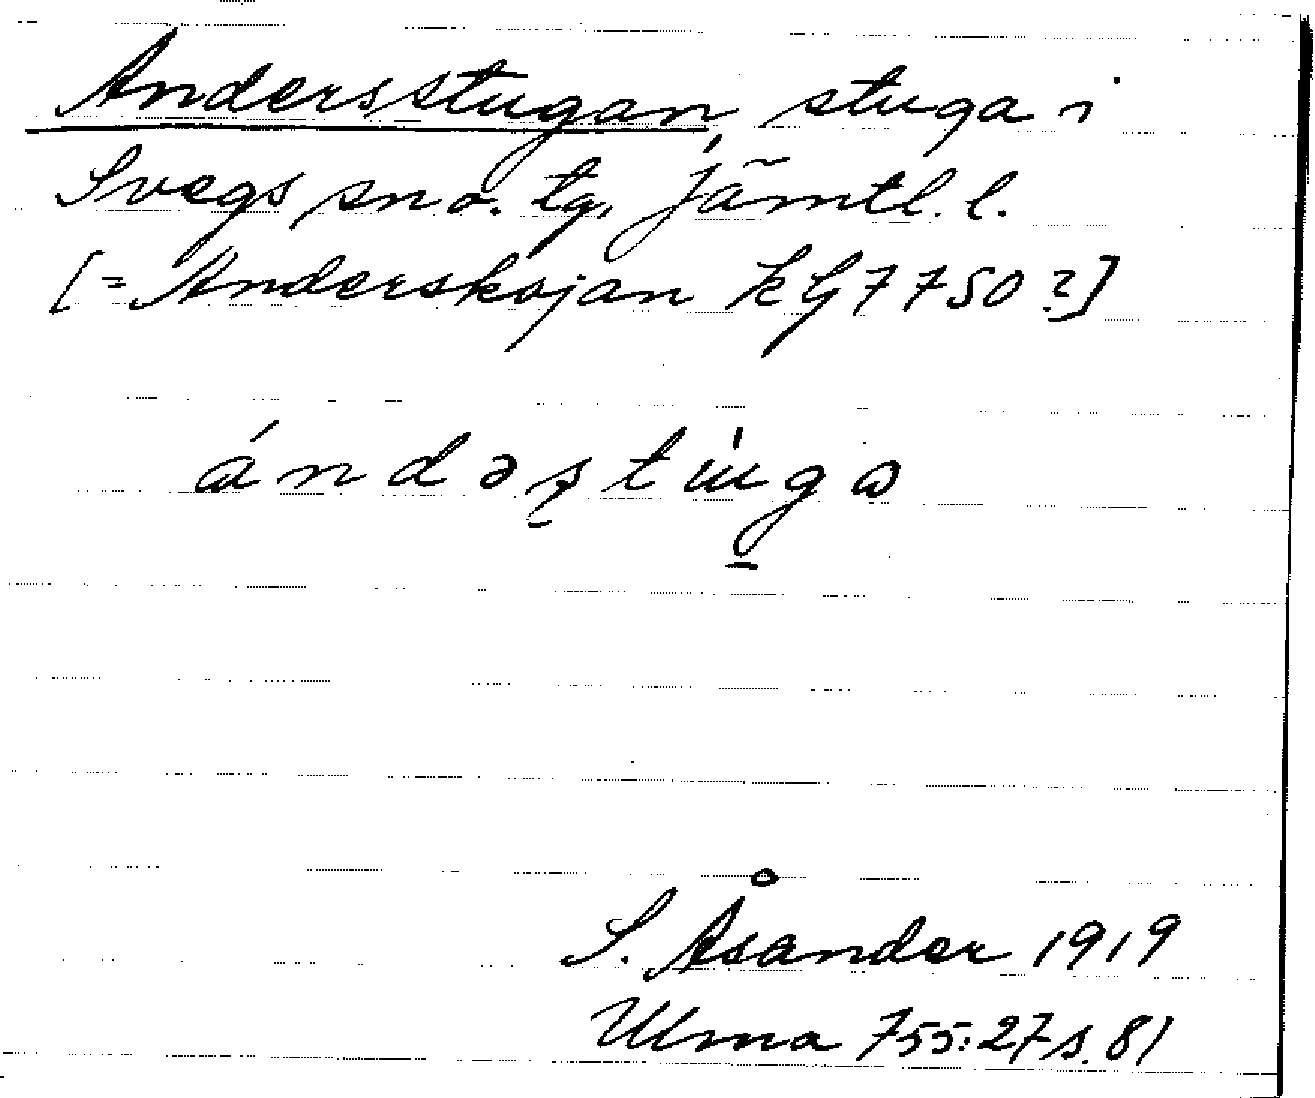 Andersstugan, stuga i
Svegs sn o. tg, Jämtl. l.
[= Anderskojan kG 7750?]
ándəʂtùgɷ
S. Åsander 1919
Ulma 755:27 s. 81